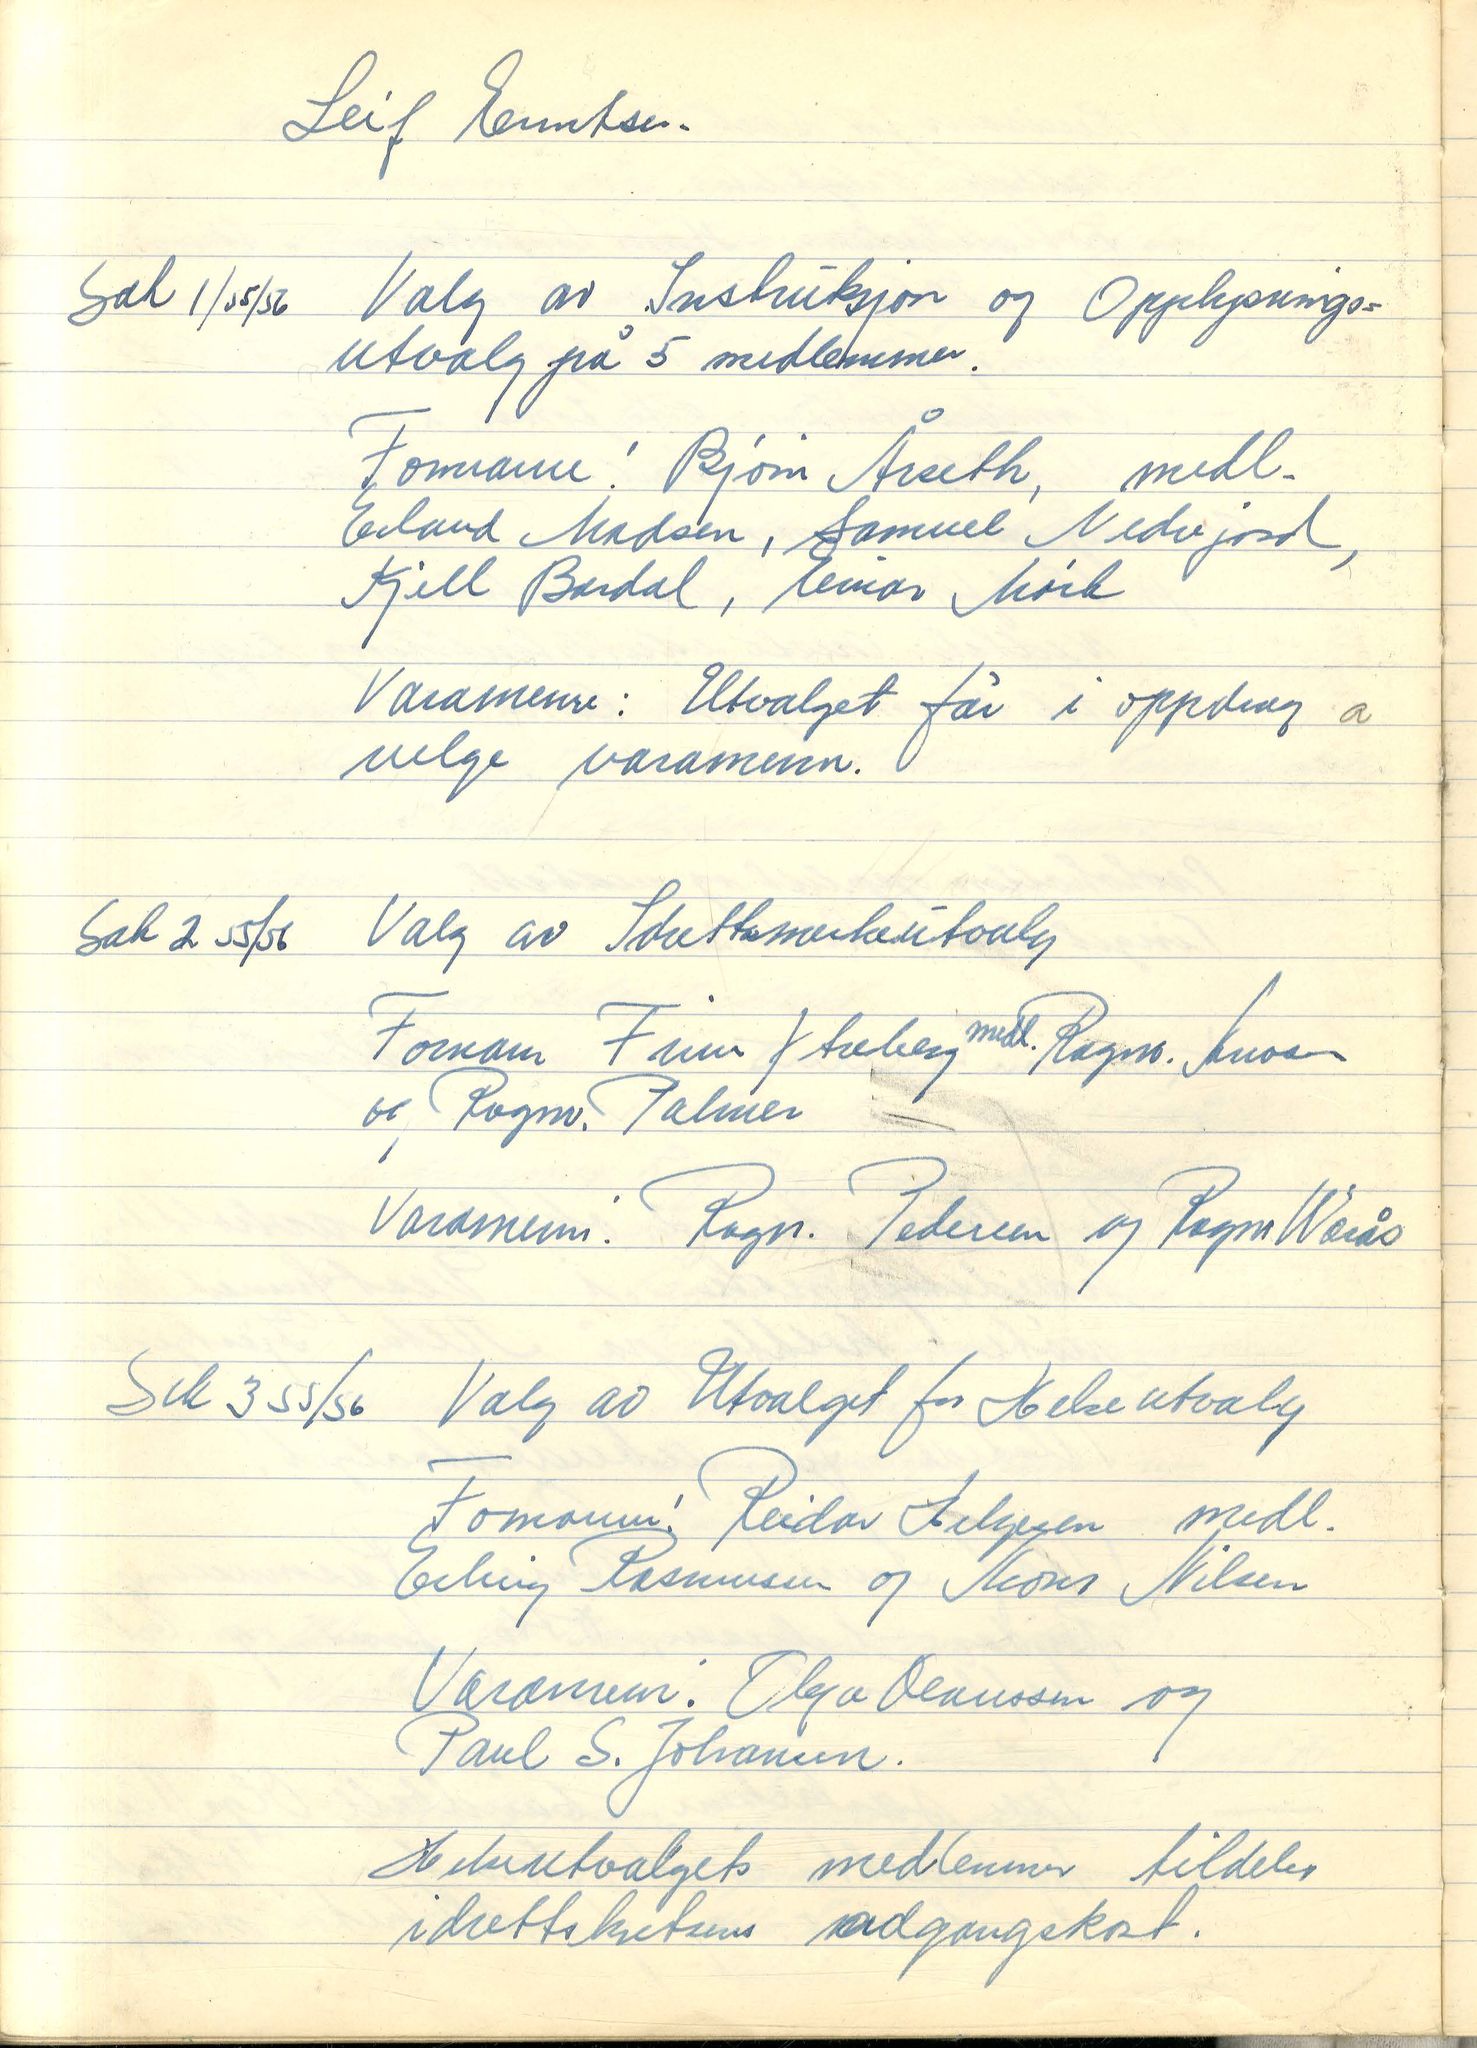 Leif
Sak 1/55/56 Valg av Instruksjon og Opplysnings=
utvalg på 5 medlemmer.
Formann: Bjórn Årseth, medl.
Erland Madsen, Samuel Nedrejord,
Kjell Bardal, Einar Mórk
Varamenn: Utvalget får i oppdrag a
velge varamenn.
Sak 2 55/56 Valg av Idrettsmerkeutvalg
Formann Finn medl. Ragnv.
og Ragnv. Palmer
Varamenn: Ragn. Pedersen og Ragnv
Sak 3 55/56 Valg av Utvalget for Helseutvalg
Formann: Reidar Helgesen medl.
Erling Rasmussen og Nilsen
Varamenn: Olga Olaussen og
Paul S. Johansen.
Helseutvalgets medlemmer tildeles
idrettskretsens adgangskort.